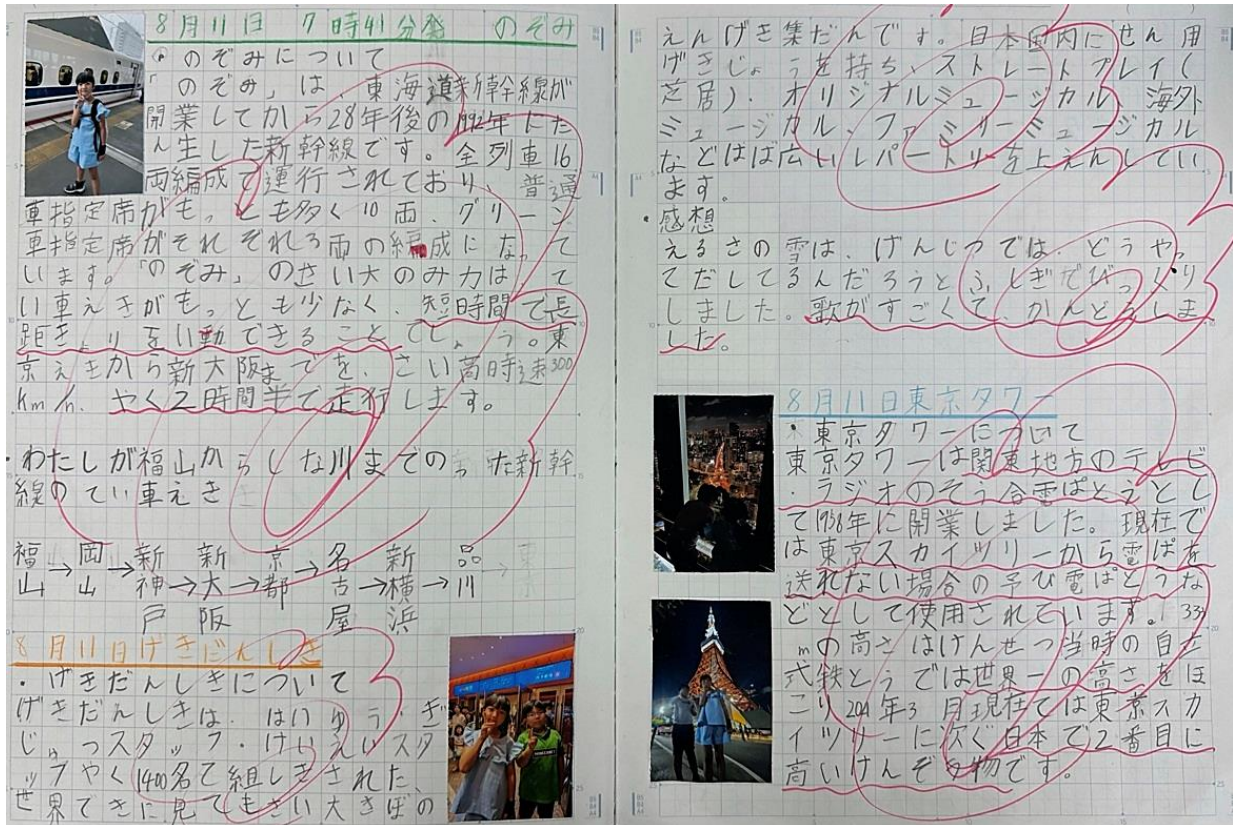 8月11日 7時41分発 のぞみ
のぞみについて
「のぞみ」は、東海道新幹線が
開業してから28年後の1992年にた
ん生した新幹線です。全列車16
両編成で運行されており、普通
車指定席がもっとも多く10両、グリーン
車指定席がそれぞれ3両の編成になって
います。「のぞみ」のさい大のみ力は、て
い車えきがもっとも少なく、短時間で長
距きょりをい動できることでしょう。東
京えきから新大阪までを、さい高時速300
km/h、やく2時間半で走行します。
・わたしが福山からしな川までの った新幹
線のてい車えき
福山→岡山→新神戸→新大阪→京都→名古屋→新横浜→品川→東京
8月11日げきだんしき
・げきだんしきについて
げきだんしきは、はいゆう・ぎ
じゅつスタッフ・けいえいスタ
ッフやく1400名で組しきされた、
世界てきに見てもさい大きぼの
えんげき集だんです。日本国内にせん用
げきじょうを持ち、ストレートプレイ(
芝居)、オリジナルミュージカル、海外
ミュージカル、ファミリーミュージカル
などはば広いレパートリーを上えんしてい
ます。
・感想
えるさの雪は、げんじつでは、どうやっ
てだしてるんだろうとふしぎでびっくり
しました。歌がすごくて、かんどうしま
した。
8月11日東京タワー
・東京タワーについて
東京タワーは関東地方のテレビ
・ラジオのそう合電ぱとうとし
て1958年に開業しました。現在で
は東京スカイツリーから電ぱを
送れない場合の予び電ぱとうな
どとして使用されています。333
mの高さはけんせつ当時の自立
式鉄とうでは世界一の高さをほ
こり 年3月現在では東京スカ
イツリーに次ぐ日本で2番目に
高いけんぞう物です。